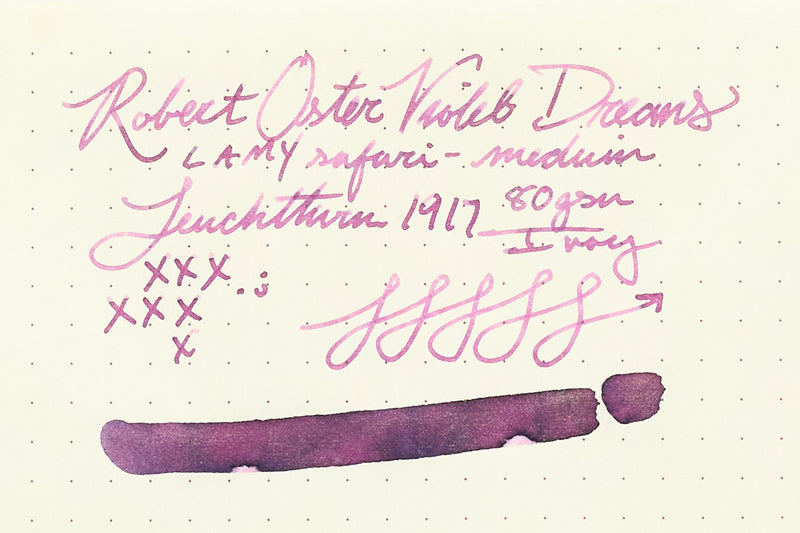 Robert Oster Violet Dreams
LAMY safari - medium
Leuchtturm 1917 80gsm
Ivory
XXX.j
XXX
X